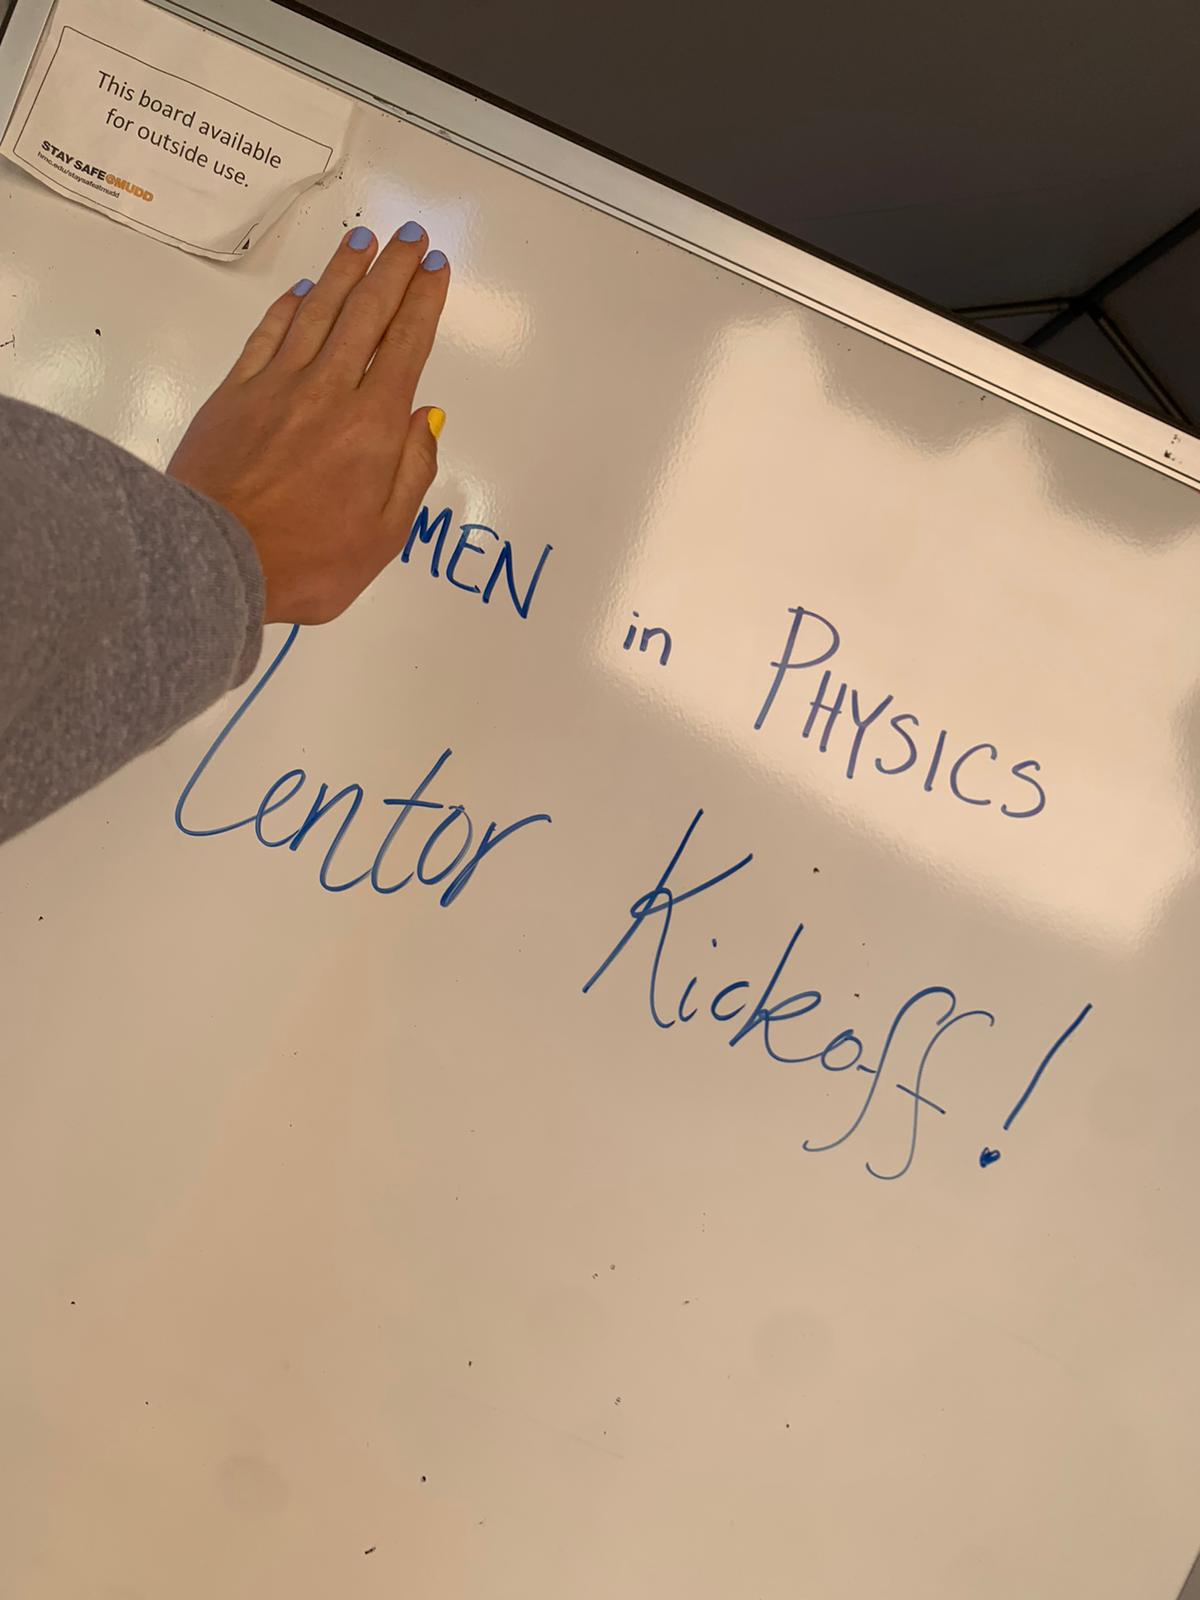 This board available
for outside use.
STAY SAFE@MUDD
hmc.edu/staysafeatmudd
MEN in PHYSICS
entor Kickoff!